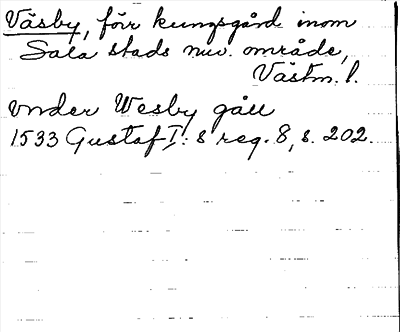 Väsby, förr kungsgård inom
Sala stads nuv. område,
Västm. l.
vnder Wesby gåll
1533 Gustaf I:s reg. 8, s. 202.